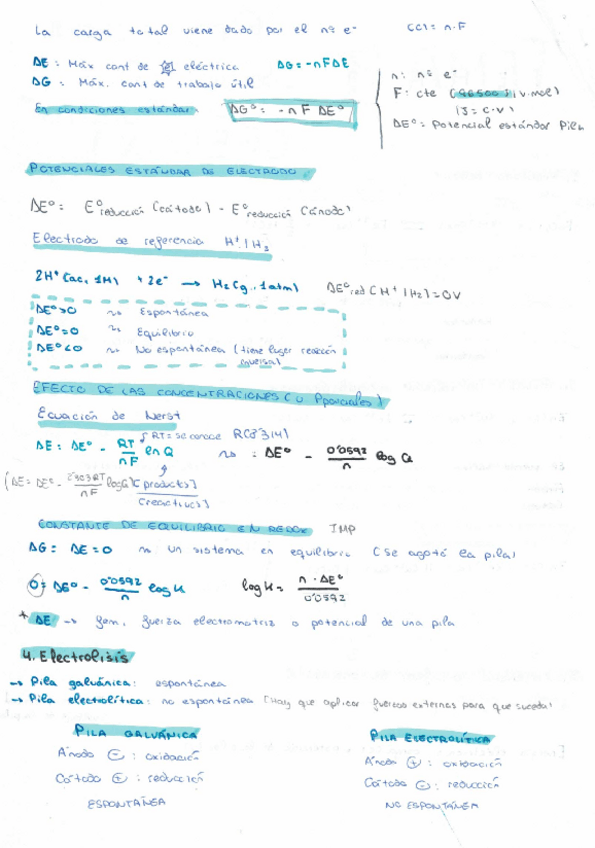 La carga total viene dado por el nº e⁻ C(C) = n·F
ΔE : Máx cant de eléctrica ΔG = -nFΔE
ΔG : Máx. cant de trabajo útil
En condiciones estándar ΔGº = -n F ΔEº
n: nº e⁻
F: cte (96500 J/V·mol)
(J = C·V)
ΔEº = Potencial estándar Pila
POTENCIALES ESTÁNDAR DE ELECTRODO
ΔEº = Eºreducción (cátodo) - Eºreducción (ánodo)
Electrodo de referencia H⁺/H₂
2H⁺(ac, 1M) + 2e⁻ → H₂(g, 1atm) ΔEºred (H⁺/H₂) = 0V
ΔEº>0 ~> Espontánea
ΔEº=0 ~> Equilibrio
ΔEº<0 ~> No espontánea (tiene lugar reacción
inversa)
EFECTO DE LAS CONCENTRACIONES (o Pparciales)
Ecuación de Nerst
RT = se conoce R(8'314)
ΔE = ΔEº - RT/nF lnQ ~> = ΔEº - 0'0592/n log Q
(ΔE = ΔEº - 2'303RT/nF logQ) [productos]/[reactivos]
CONSTANTE DE EQUILIBRIO EN REDOX IMP
ΔG = ΔE = 0 ~> un sistema en equilibrio (se agotó la pila)
0 = ΔGº - 0'0592/n log K log K = n·ΔEº/0'0592
* ΔE → fem, fuerza electromotriz o potencial de una pila
4. Electrolisis
→ Pila galvánica: espontánea
→ Pila electrolítica: no espontánea (Hay que aplicar fuerzas externas para que suceda)
PILA GALVÁNICA PILA ELECTROLÍTICA
Ánodo ⊖ : oxidación Ánodo ⊕ : oxidación
Cátodo ⊕ : reducción Cátodo ⊖ : reducción
ESPONTÁNEA NO ESPONTÁNEA